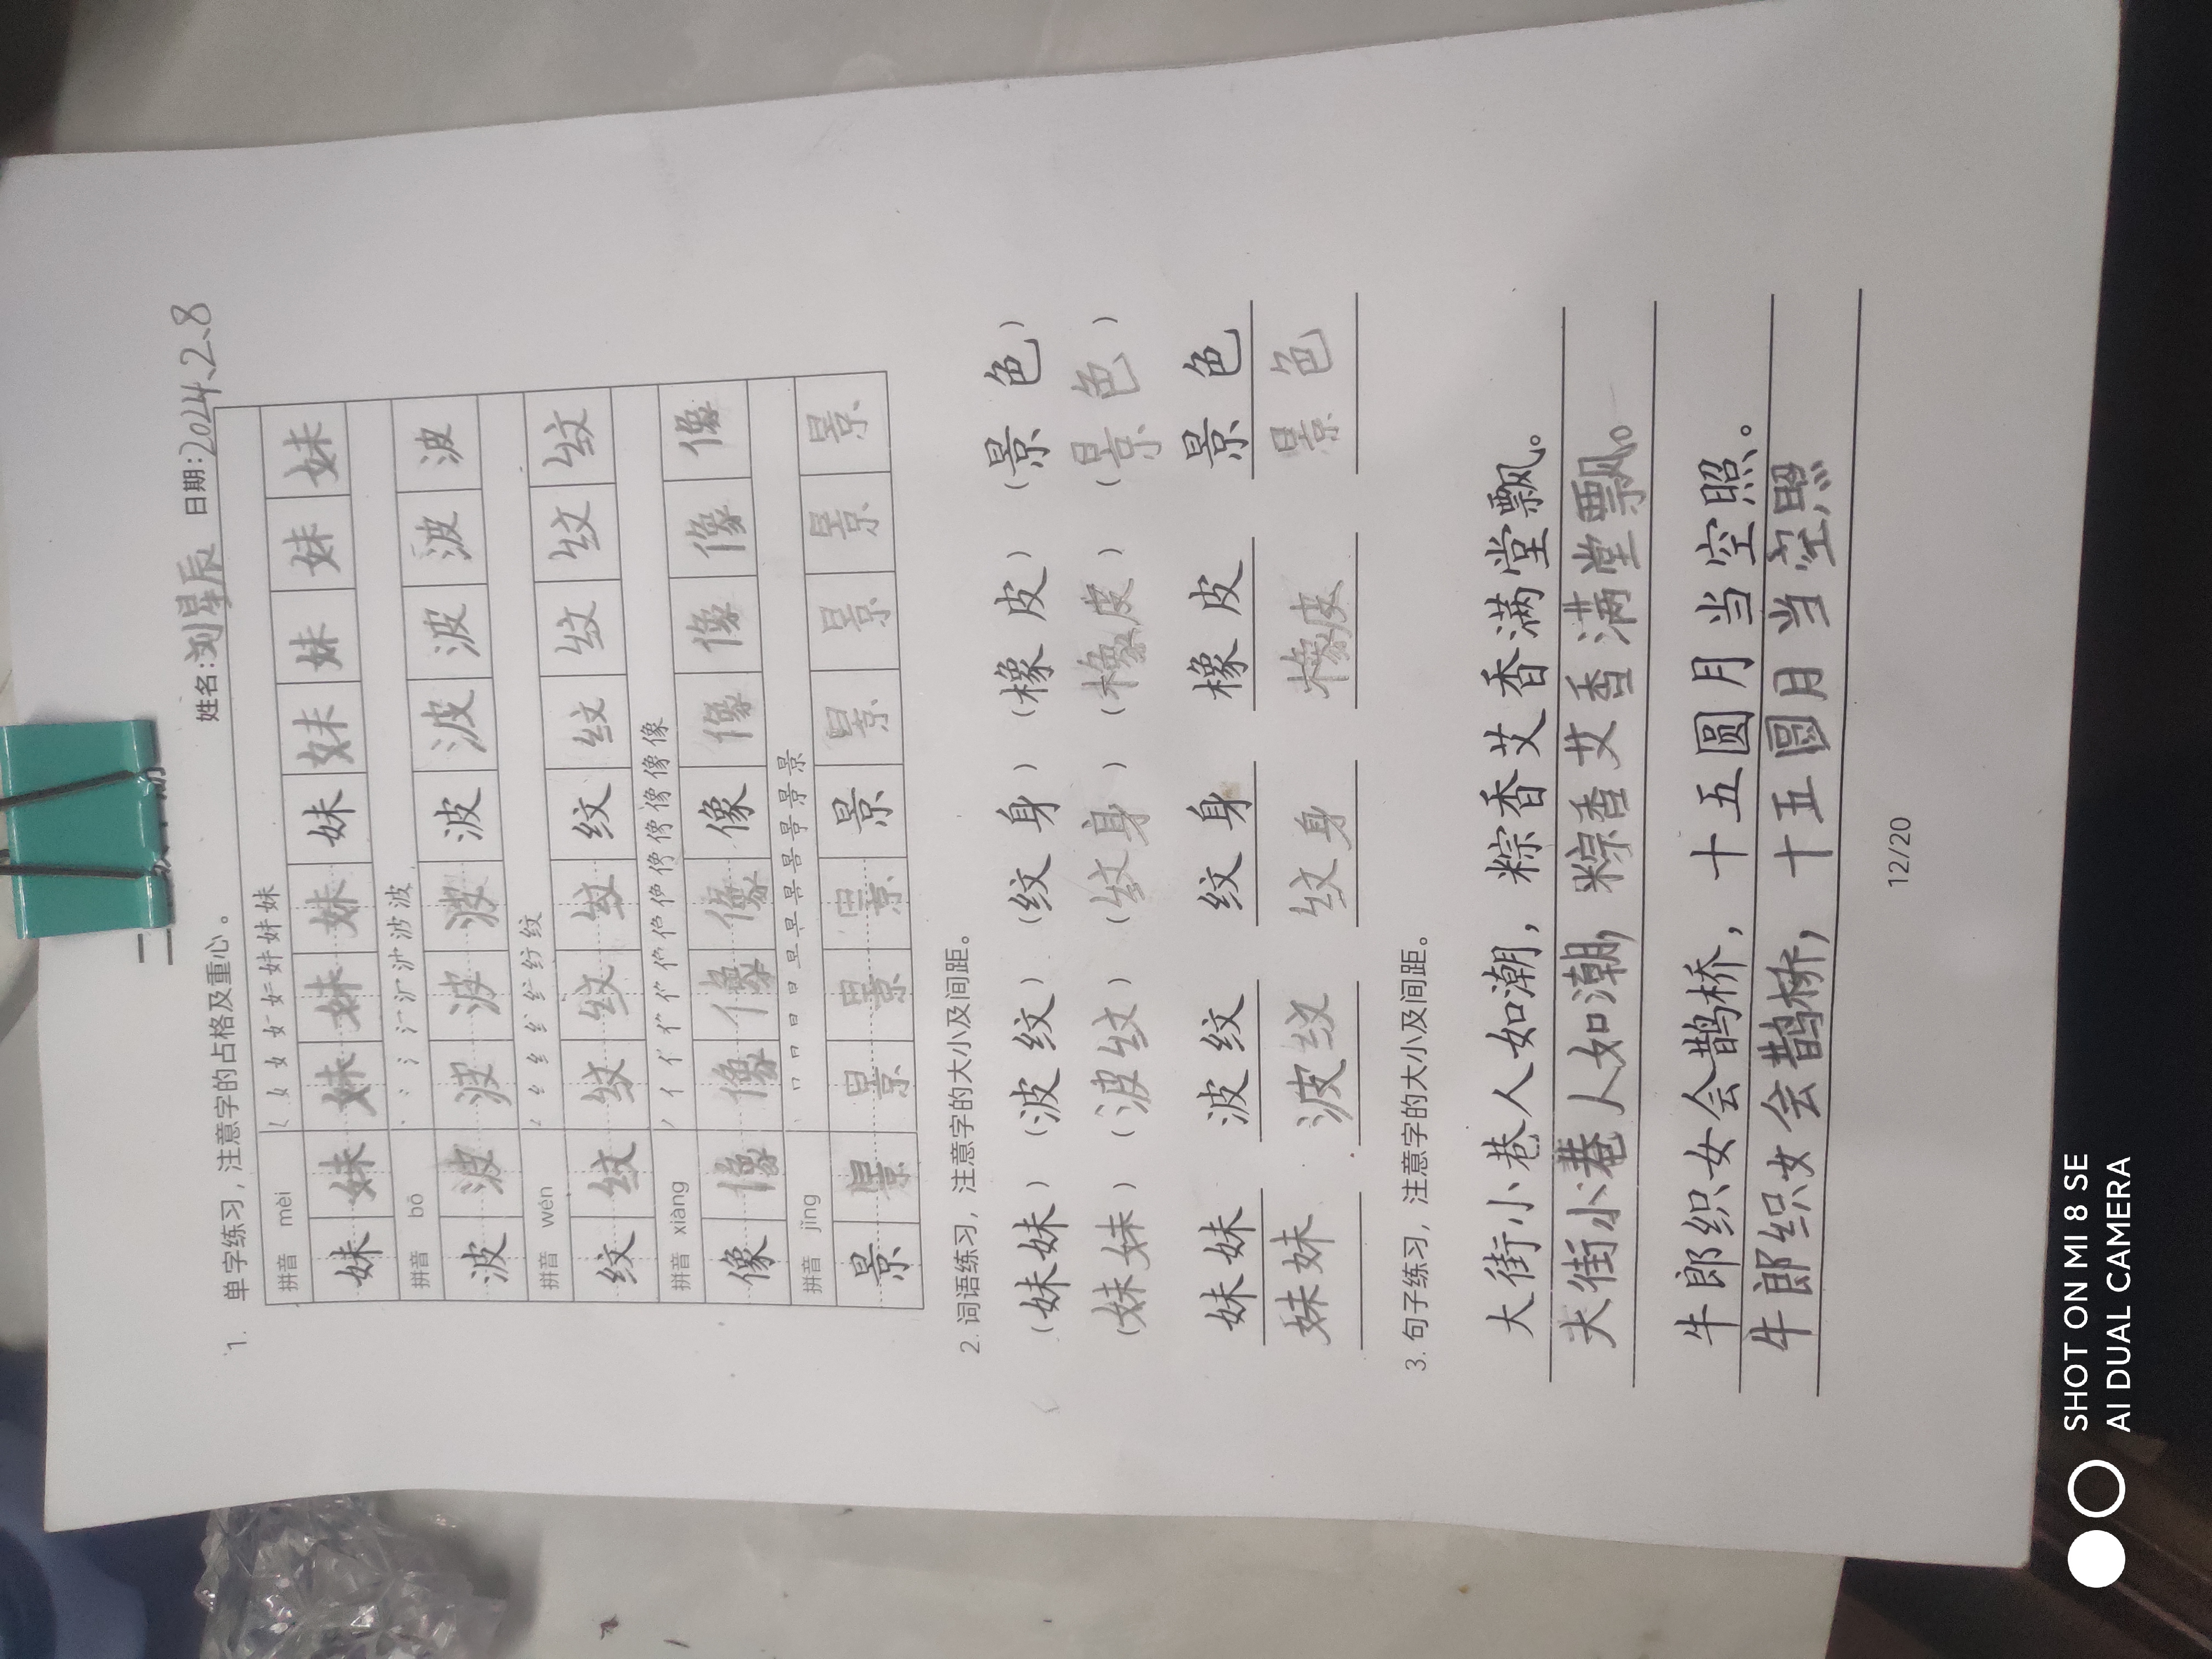 姓名:刘星辰 日期:2024.2.8
1. 单字练习，注意字的占格及重心。
拼音 mèi 乚 女 女 女 女 妹 妹 妹
妹 妹 妹 妹 妹 妹 妹 妹 妹 妹
拼音 bō 波
波 波 波 波 波 波 波 波 波 波
拼音 wén 纹
纹 纹 纹 纹 纹 纹 纹 纹 纹 纹
拼音 xiàng 像 像 像
像 像 像 像 像 像 像 像 像 像
拼音 jǐng 景 景
景 景 景 景 景 景 景 景 景 景
2. 词语练习，注意字的大小及间距。
(妹妹) (波纹) (纹身) (橡皮) (景色)
(妹妹) (波纹) (纹身) (橡皮) (景色)
妹妹 波纹 纹身 橡皮 景色
妹妹 波纹 纹身 橡皮 景色
3. 句子练习，注意字的大小及间距。
大街小巷人如潮，粽香艾香满堂飘。
大街小巷人如潮，粽香艾香满堂飘。
牛郎织女会鹊桥，十五圆月当空照。
牛郎织女会鹊桥，十五圆月当空照
12/20
SHOT ON MI 8 SE
AI DUAL CAMERA